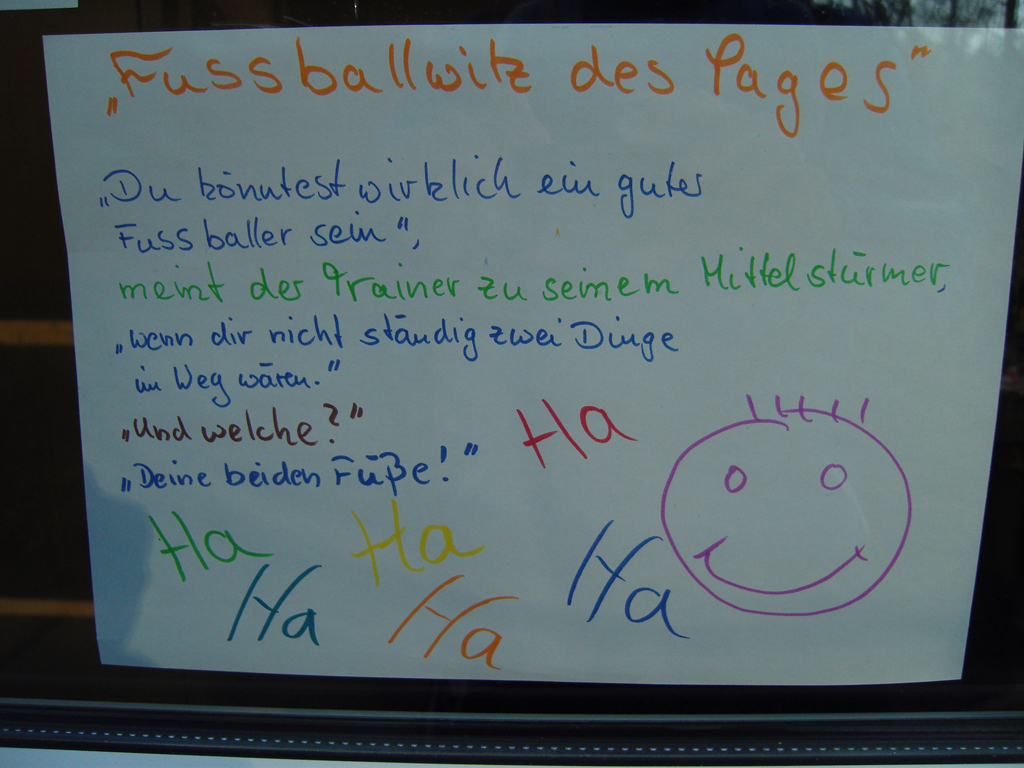 „Fussballwitz des Tages"
„Du könntest wirklich ein guter
Fussballer sein",
meint der Trainer zu seinem Mittelstürmer,
„wenn dir nicht ständig zwei Dinge
im Weg wären."
„Und welche?"
„Deine beiden Füße!"
Ha
Ha Ha
Ha Ha Ha